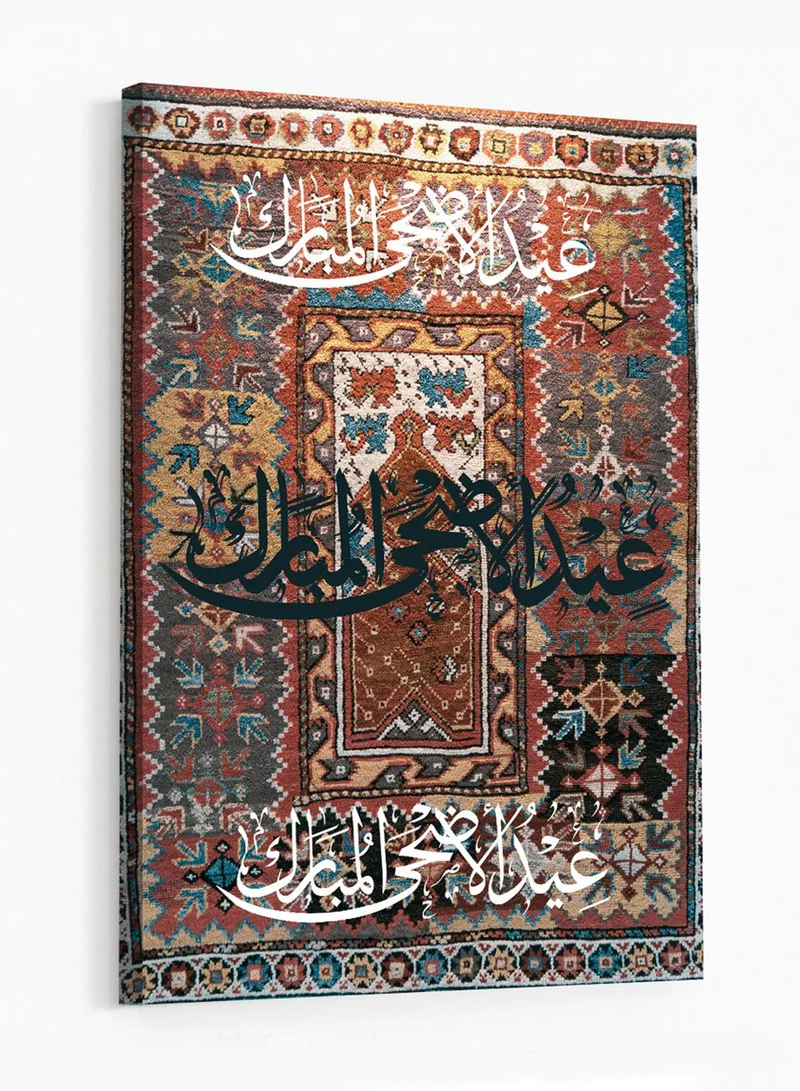 عِيْدُ الأَضْحَى المُبَارَك
عِيْدُ الأَضْحَى المُبَارَك
عِيْدُ الأَضْحَى المُبَارَك